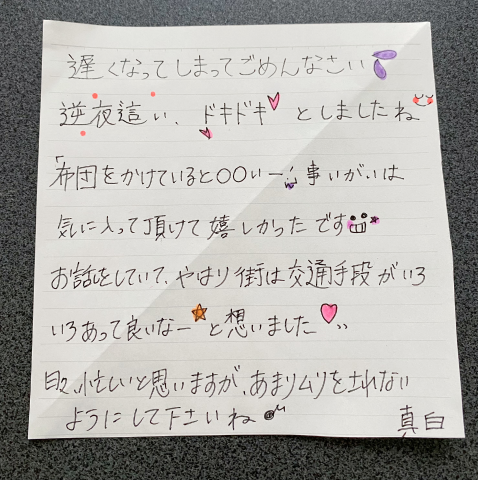 遅くなってしまってごめんなさい
逆夜這い、ドキドキとしましたね
「布団をかけていると〇〇いー」事いがいは
気に入って頂けて嬉しかったです
お話をしていて、やはり街は交通手段がいろ
いろあって良いなーと想いました
日々、忙しいと思いますが、あまりムリをされない
ようにして下さいね
真白